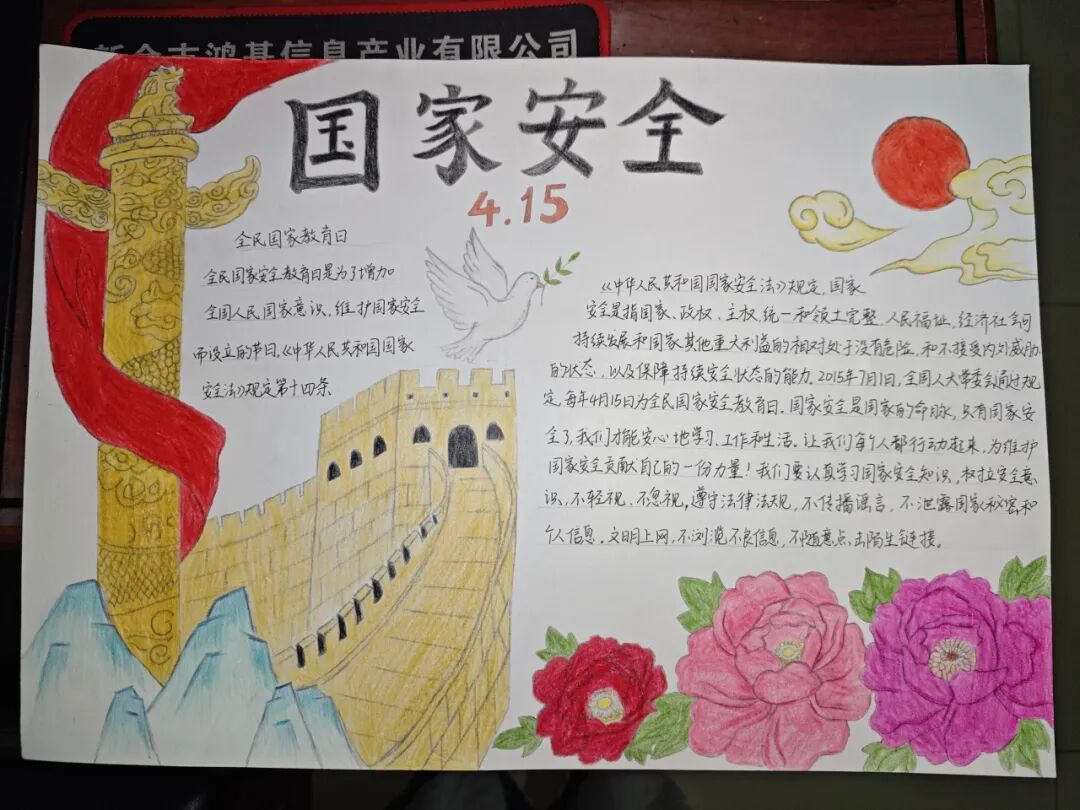 新余市鸿基信息产业有限公司
国家安全
4.15
全民国家教育日
全民国家安全教育日是为了增加
全国人民国家意识，维护国家安全
而设立的节日，《中华人民共和国国家
安全法》规定第十四条
《中华人民共和国国家安全法》规定，国家
安全是指国家、政权、主权、统一和领土完整、人民福祉、经济社会可
持续发展和国家其他重大利益的相对处于没有危险、和不接受内外威胁
的状态，以及保障持续安全状态的能力。2015年7月1日，全国人大常委会通过规
定，每年4月15日为全民国家安全教育日。国家安全是国家的命脉，只有国家安
全了，我们才能安心地学习、工作和生活。让我们每个人都行动起来，为维护
国家安全贡献自己的一份力量！我们要认真学习国家安全知识，树立安全意
识，不轻视、不忽视，遵守法律法规，不传播谣言，不泄露国家秘密和
个人信息。文明上网，不浏览不良信息，不随意点击陌生链接。